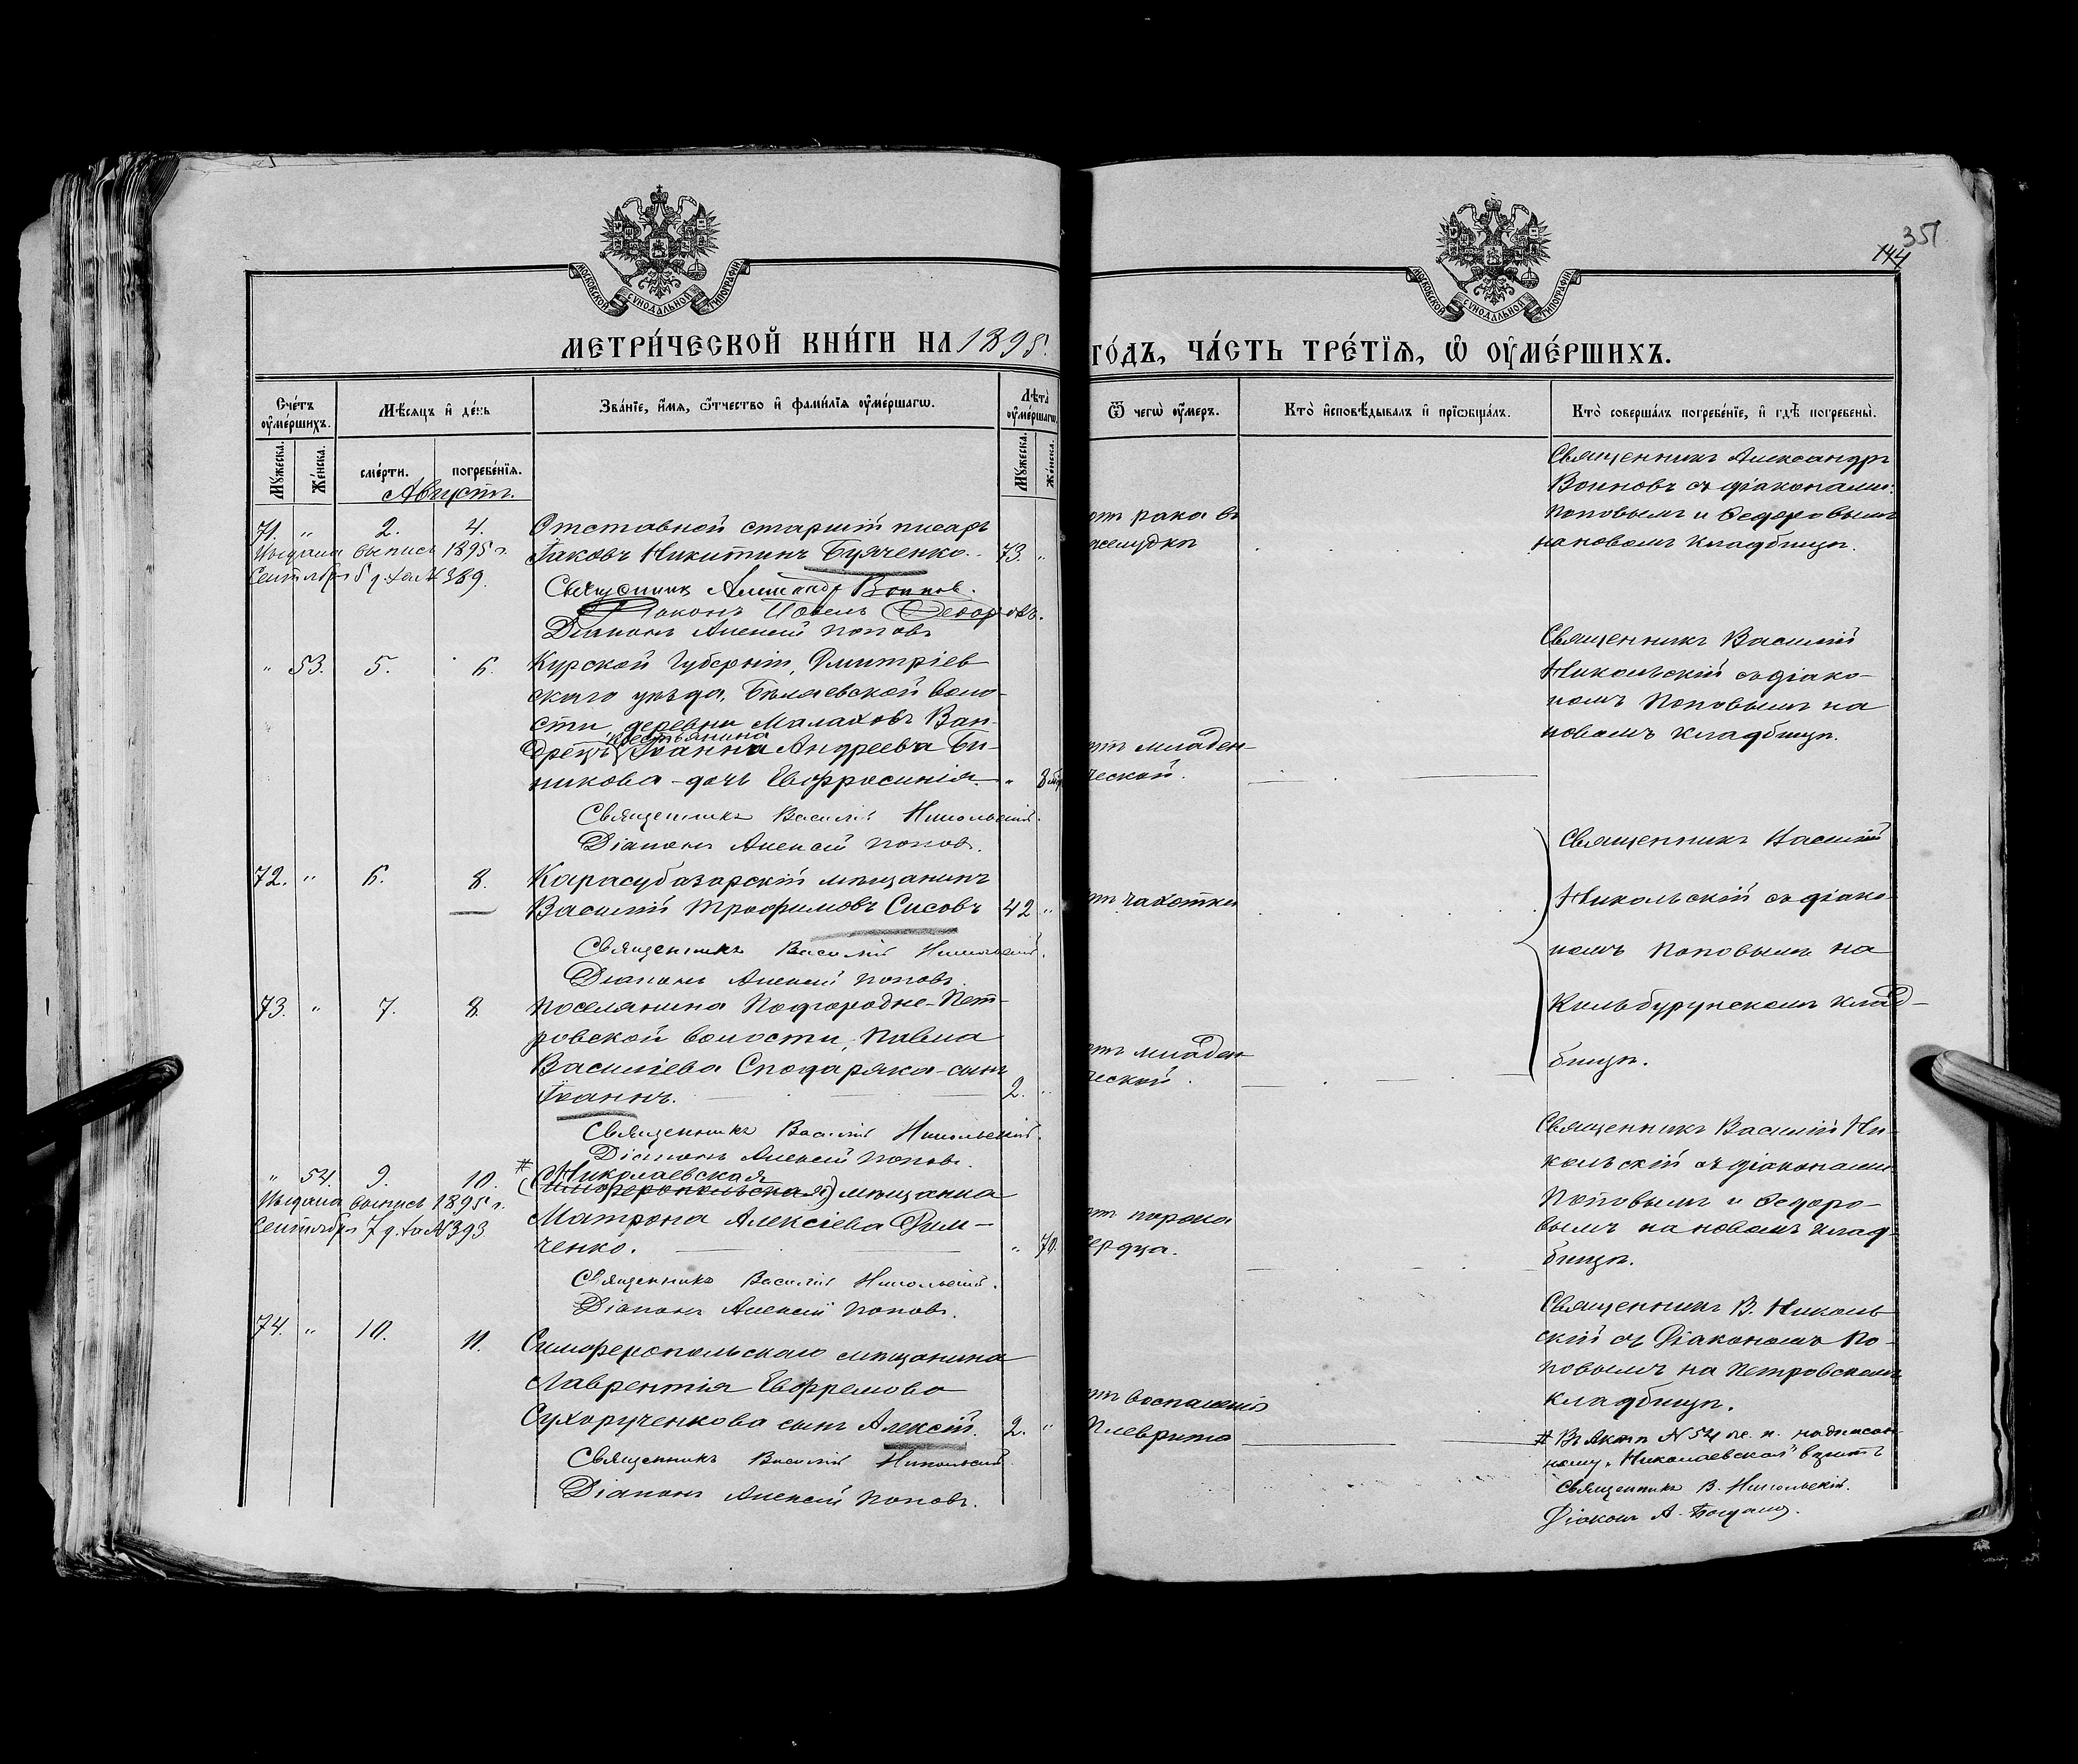 351
144
МОСКОВСКОЙ СѴНОДАЛЬНОЙ ТИПОГРАФИИ
МОСКОВСКОЙ СѴНОДАЛЬНОЙ ТИПОГРАФИИ
МЕТРИ́ЧЕСКОЙ КНИ́ГИ НА 1895.
ГО́ДЪ, ЧА́СТЬ ТРЕ́ТЇѦ, Ѡ҆ ОУ҆МЕ́РШИХЪ.
Сче́тъ оу҆ме́ршихъ.
Мѣ́сяцъ и҆ де́нь
Зва́нїе, и҆́мѧ, ѻ҆́тчество и҆ фами́лїѧ оу҆ме́ршагѡ.
Лѣ́та оу҆ме́ршагѡ.
Ѿ чегѡ̀ оу҆́меръ.
Кто̀ и҆сповѣ́дывалъ и҆ прїѡбща́лъ.
Кто̀ соверша́лъ погребе́нїе, и҆ гдѣ̀ погребены̀.
Мꙋ́жеска.
Же́нска.
сме́рти.
погребе́нїѧ.
Мꙋ́жеска.
Же́нска.
Августъ.
71. " 2. 4.
Отставной старшій писарь
Іаковъ Никитинъ Буяченко. 73. "
выпись 1895 г.
Сентября 5 д. за № 389.
Священникъ Александръ Воиновъ.
Діаконъ Павелъ Федоровъ.
Діаконъ Алексій Поповъ
отъ рака въ
желудкѣ
Священникъ Александръ
Воиновъ съ діаконами:
Поповымъ и Федоровымъ
на новомъ кладбищѣ.
" 53. 5. 6.
Курской губерніи, Дмитріев
скаго уѣзда, Бѣляевской воло-
сти деревни Малаховъ Ван-
крестьянина
Іоанна Андреева Би-
никова - дочь Евфросинія. " 8 мѣс
Священникъ Василій Никольскій.
Діаконъ Алексій Поповъ.
отъ младен-
ческой.
Священникъ Василій
Никольскій съ діако-
номъ Поповымъ на
новомъ кладбищѣ.
72. " 6. 8.
Карасубазарскій мѣщанинъ
Василій Трофимовъ Сисовъ 42 "
Священникъ Василій Никольскій.
Діаконъ Алексій Поповъ
отъ чахотки
Священникъ Василій
Никольскій съ діако-
номъ Поповымъ на
Кильбурунскомъ клад-
бищѣ.
73. " 7. 8
Поселянина Подгородне-Пет-
ровской волости, Павла
Василіева Сподаряка - сынъ
Іоаннъ. 2. "
Священникъ Василій Никольскій.
Діаконъ Алексій Поповъ.
отъ младен
ческой.
" 54. 9. 10.
# Николаевская
(Симферопольская) мѣщанка
Матрона Алексіева Дим-
ченко. " 70.
выпись 1895 г.
Сентября 7 д. за № 393
Священникъ Василій Никольскій.
Діаконъ Алексій Поповъ.
отъ порока
сердца.
Священникъ Василій Ни-
кольскій съ діаконами
Поповымъ и Федоро-
вымъ на новомъ клад-
бищѣ.
74. " 10. 11.
Симферопольскаго мѣщанина
Лаврентія Евфремова
Сухорученкова сынъ Алексій. 2. "
Священникъ Василій Никольскій
Діаконъ Алексій Поповъ.
отъ воспаленія
Плеврита
Священникъ В. Николь
скій съ Діакономъ По-
повымъ на Петровскомъ
кладбищѣ.
# Въ актѣ № 54 ж. п. надписан-
ному „Николаевская" вѣрить
Священникъ В. Никольскій.
Діаконъ А.